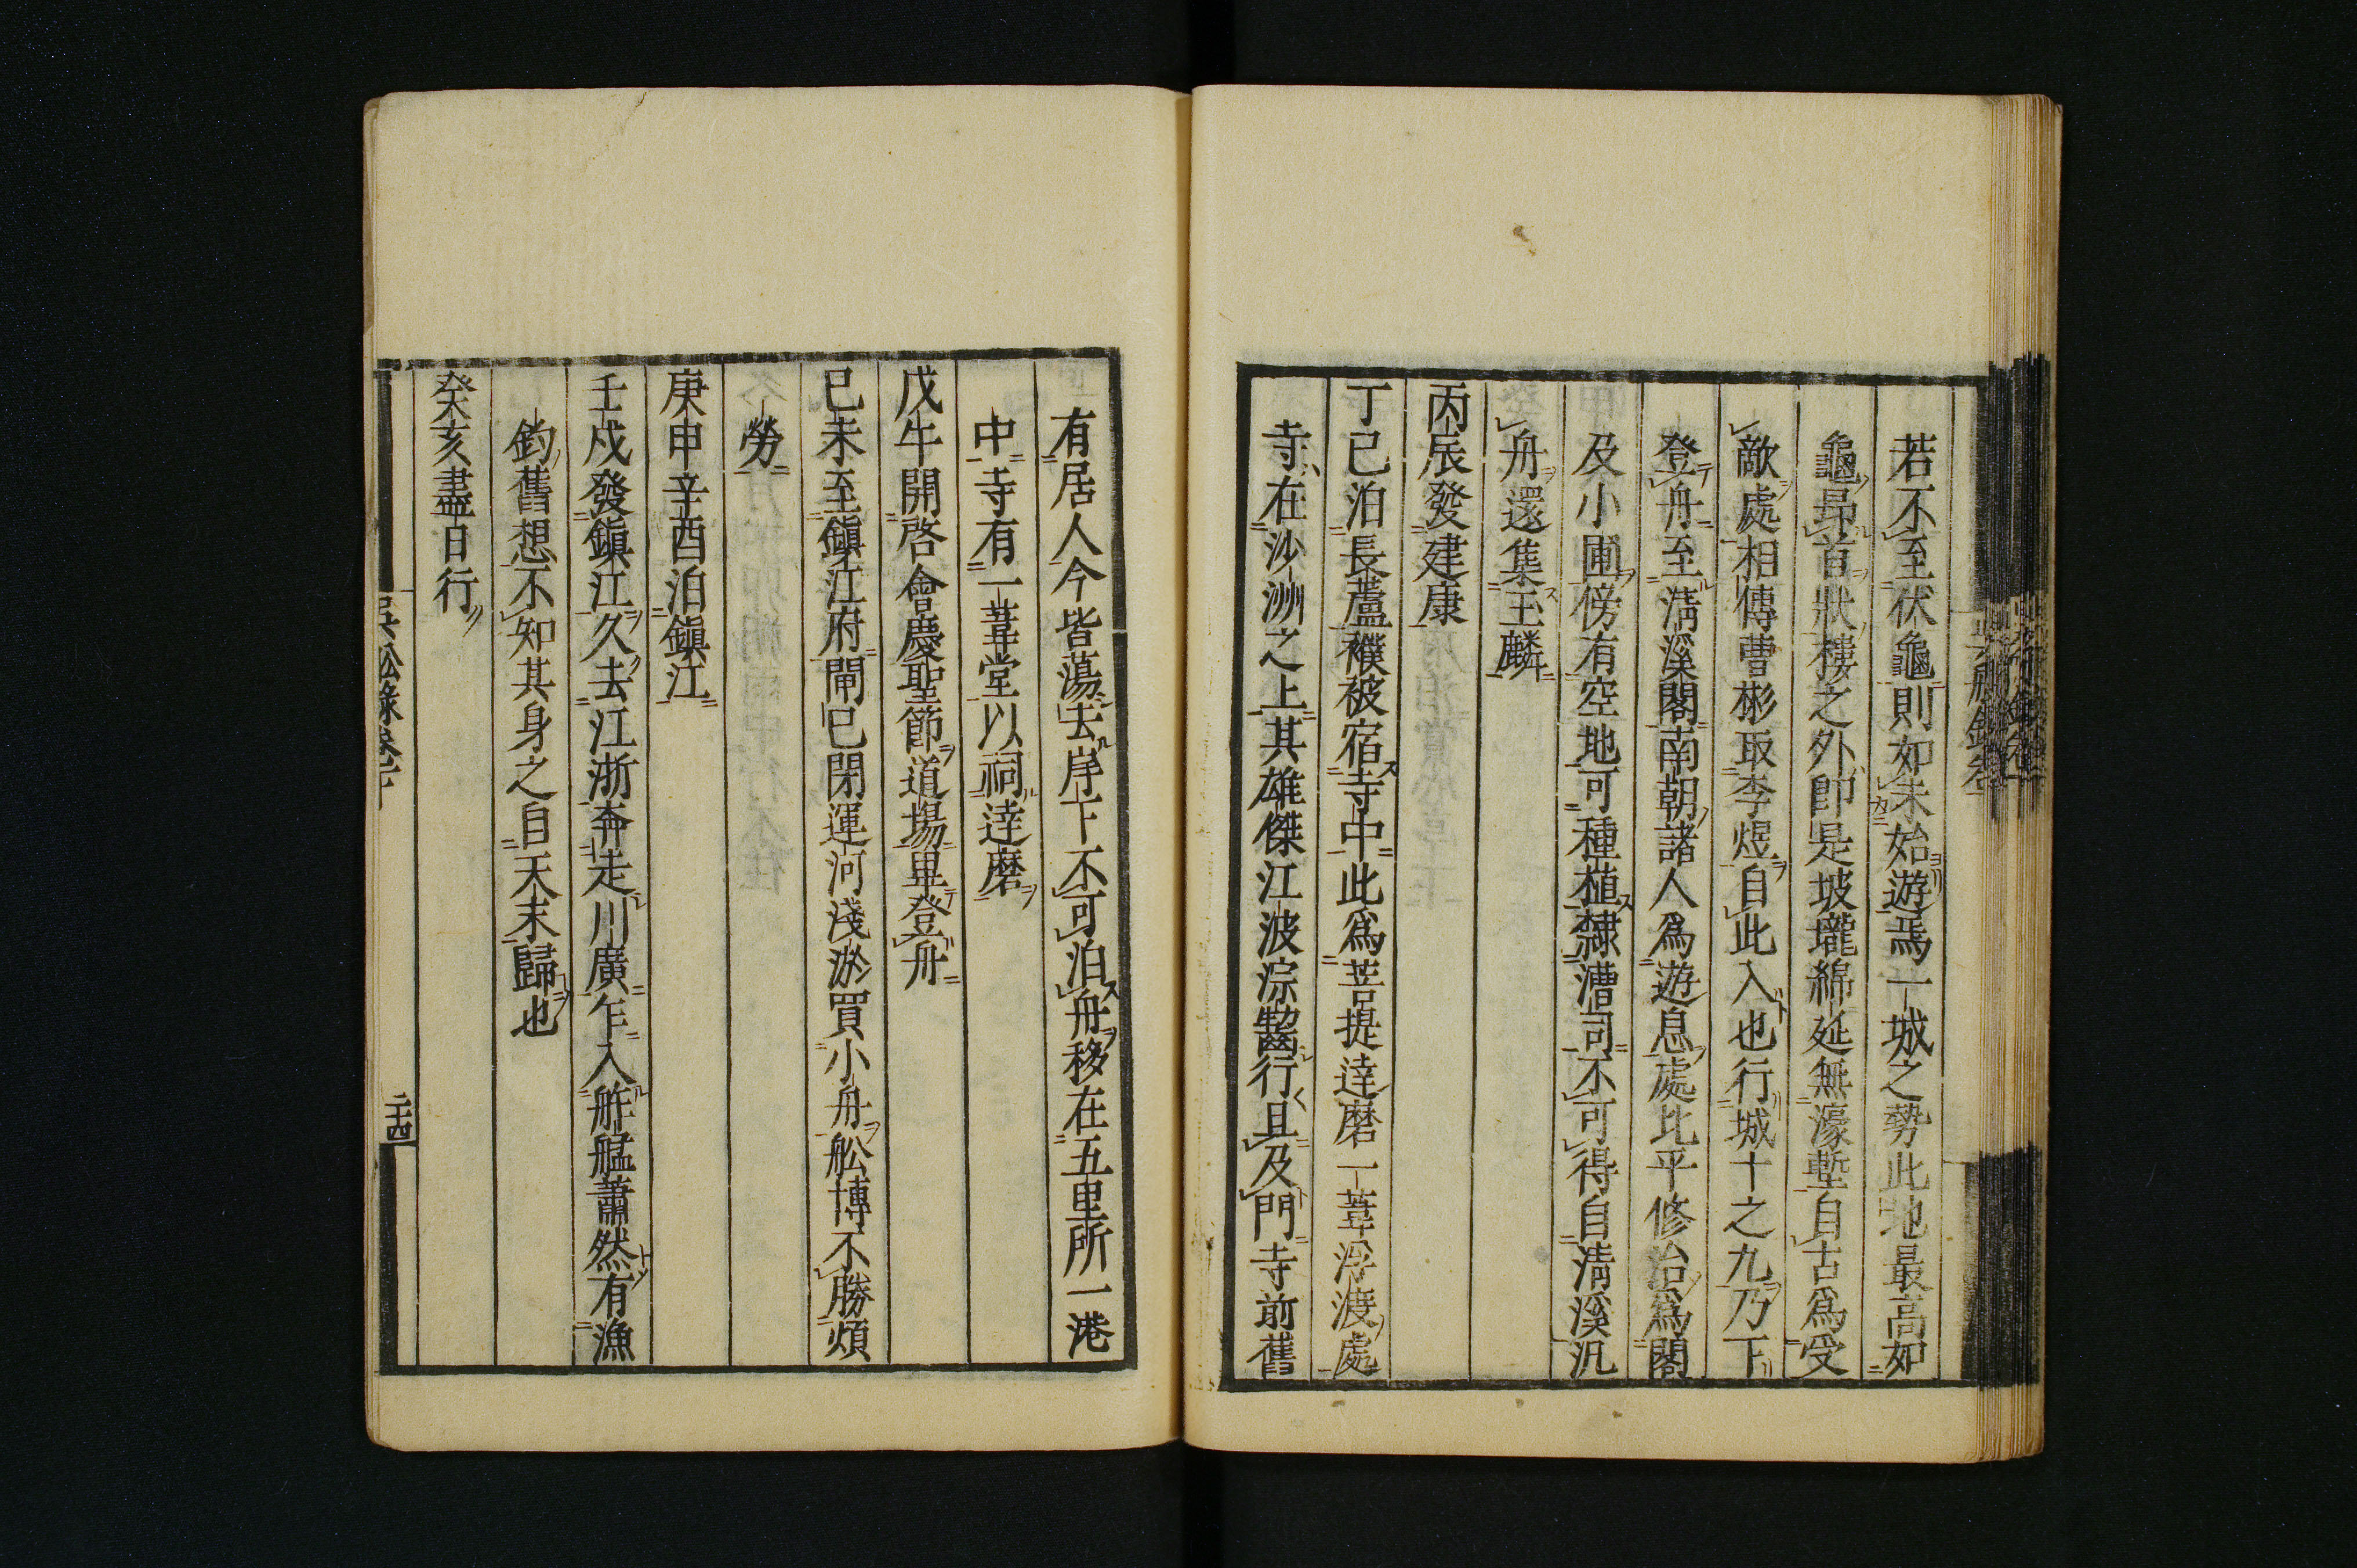 若不至伏龜則如未始遊焉一城之勢此地最高如
龜昻首狀樓之外卽是坡壠綿延無濠塹自古爲受
敵處相傳曹彬取李煜自此入也行城十之九乃下
登舟至淸溪閣南朝諸人爲遊息處比平修治爲閣
及小圃傍有空地可種植隸漕司不可得自淸溪汎
舟還集玉麟
丙辰發建康
丁巳泊長蘆襆被宿寺中此爲菩提達磨一葦浮渡處
寺在沙洲之上其雄傑江波淙齧行且及門寺前舊
有居人今皆蕩去岸下不可泊舟移在五里所一港
中寺有一葦堂以祠達磨
戊午開啓會慶聖節道場畢登舟
己未至鎭江府閘已閉運河淺淤買小舟舩博不勝煩
勞
庚申辛酉泊鎭江
壬戌發鎭江久去江浙奔走川廣乍入舴艋蕭然有漁
釣舊想不知其身之自天末歸也
癸亥盡日行
吳舩錄卷下
二十四